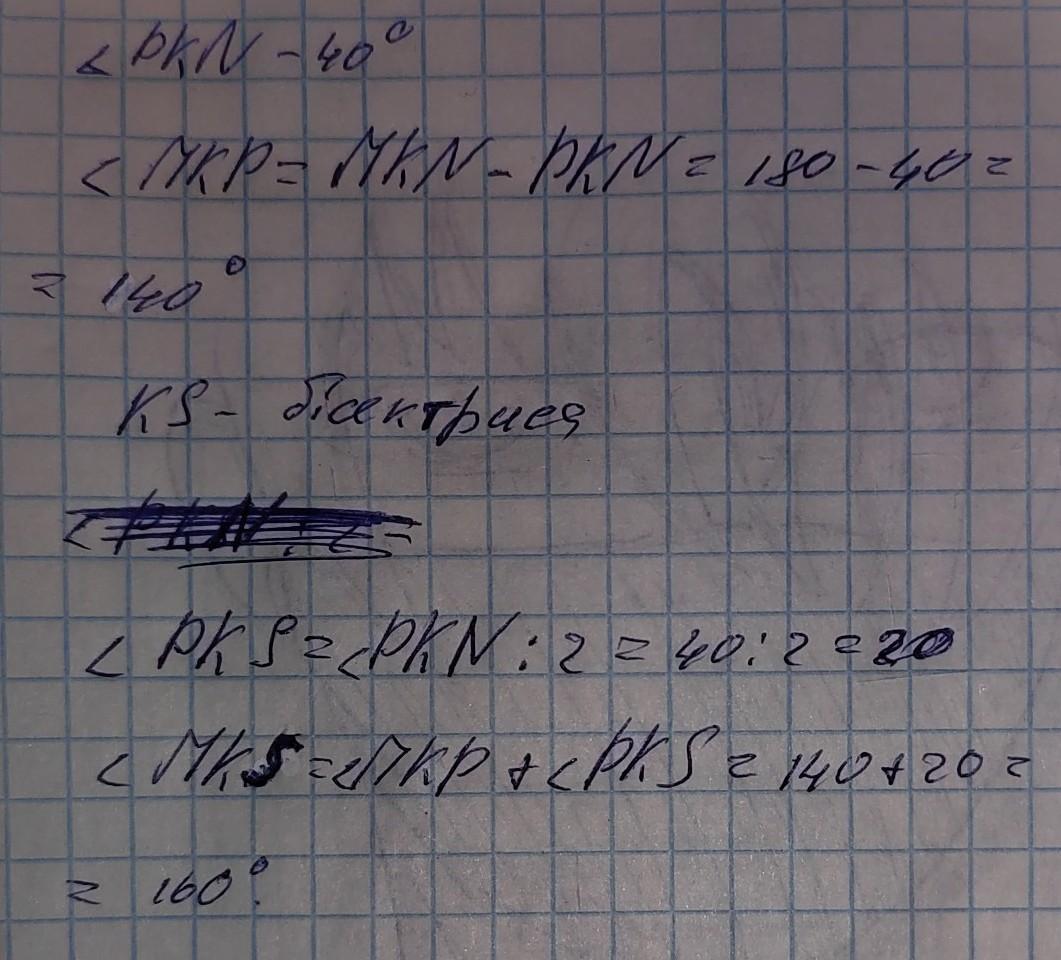 ∠PKN - 40°
∠MKP = MKN - PKN = 180 - 40 =
= 140°
KS - бісектриса
∠PKS = ∠PKN : 2 = 40 : 2 = 20
∠MKS = ∠MKP + ∠PKS = 140 + 20 =
= 160°.